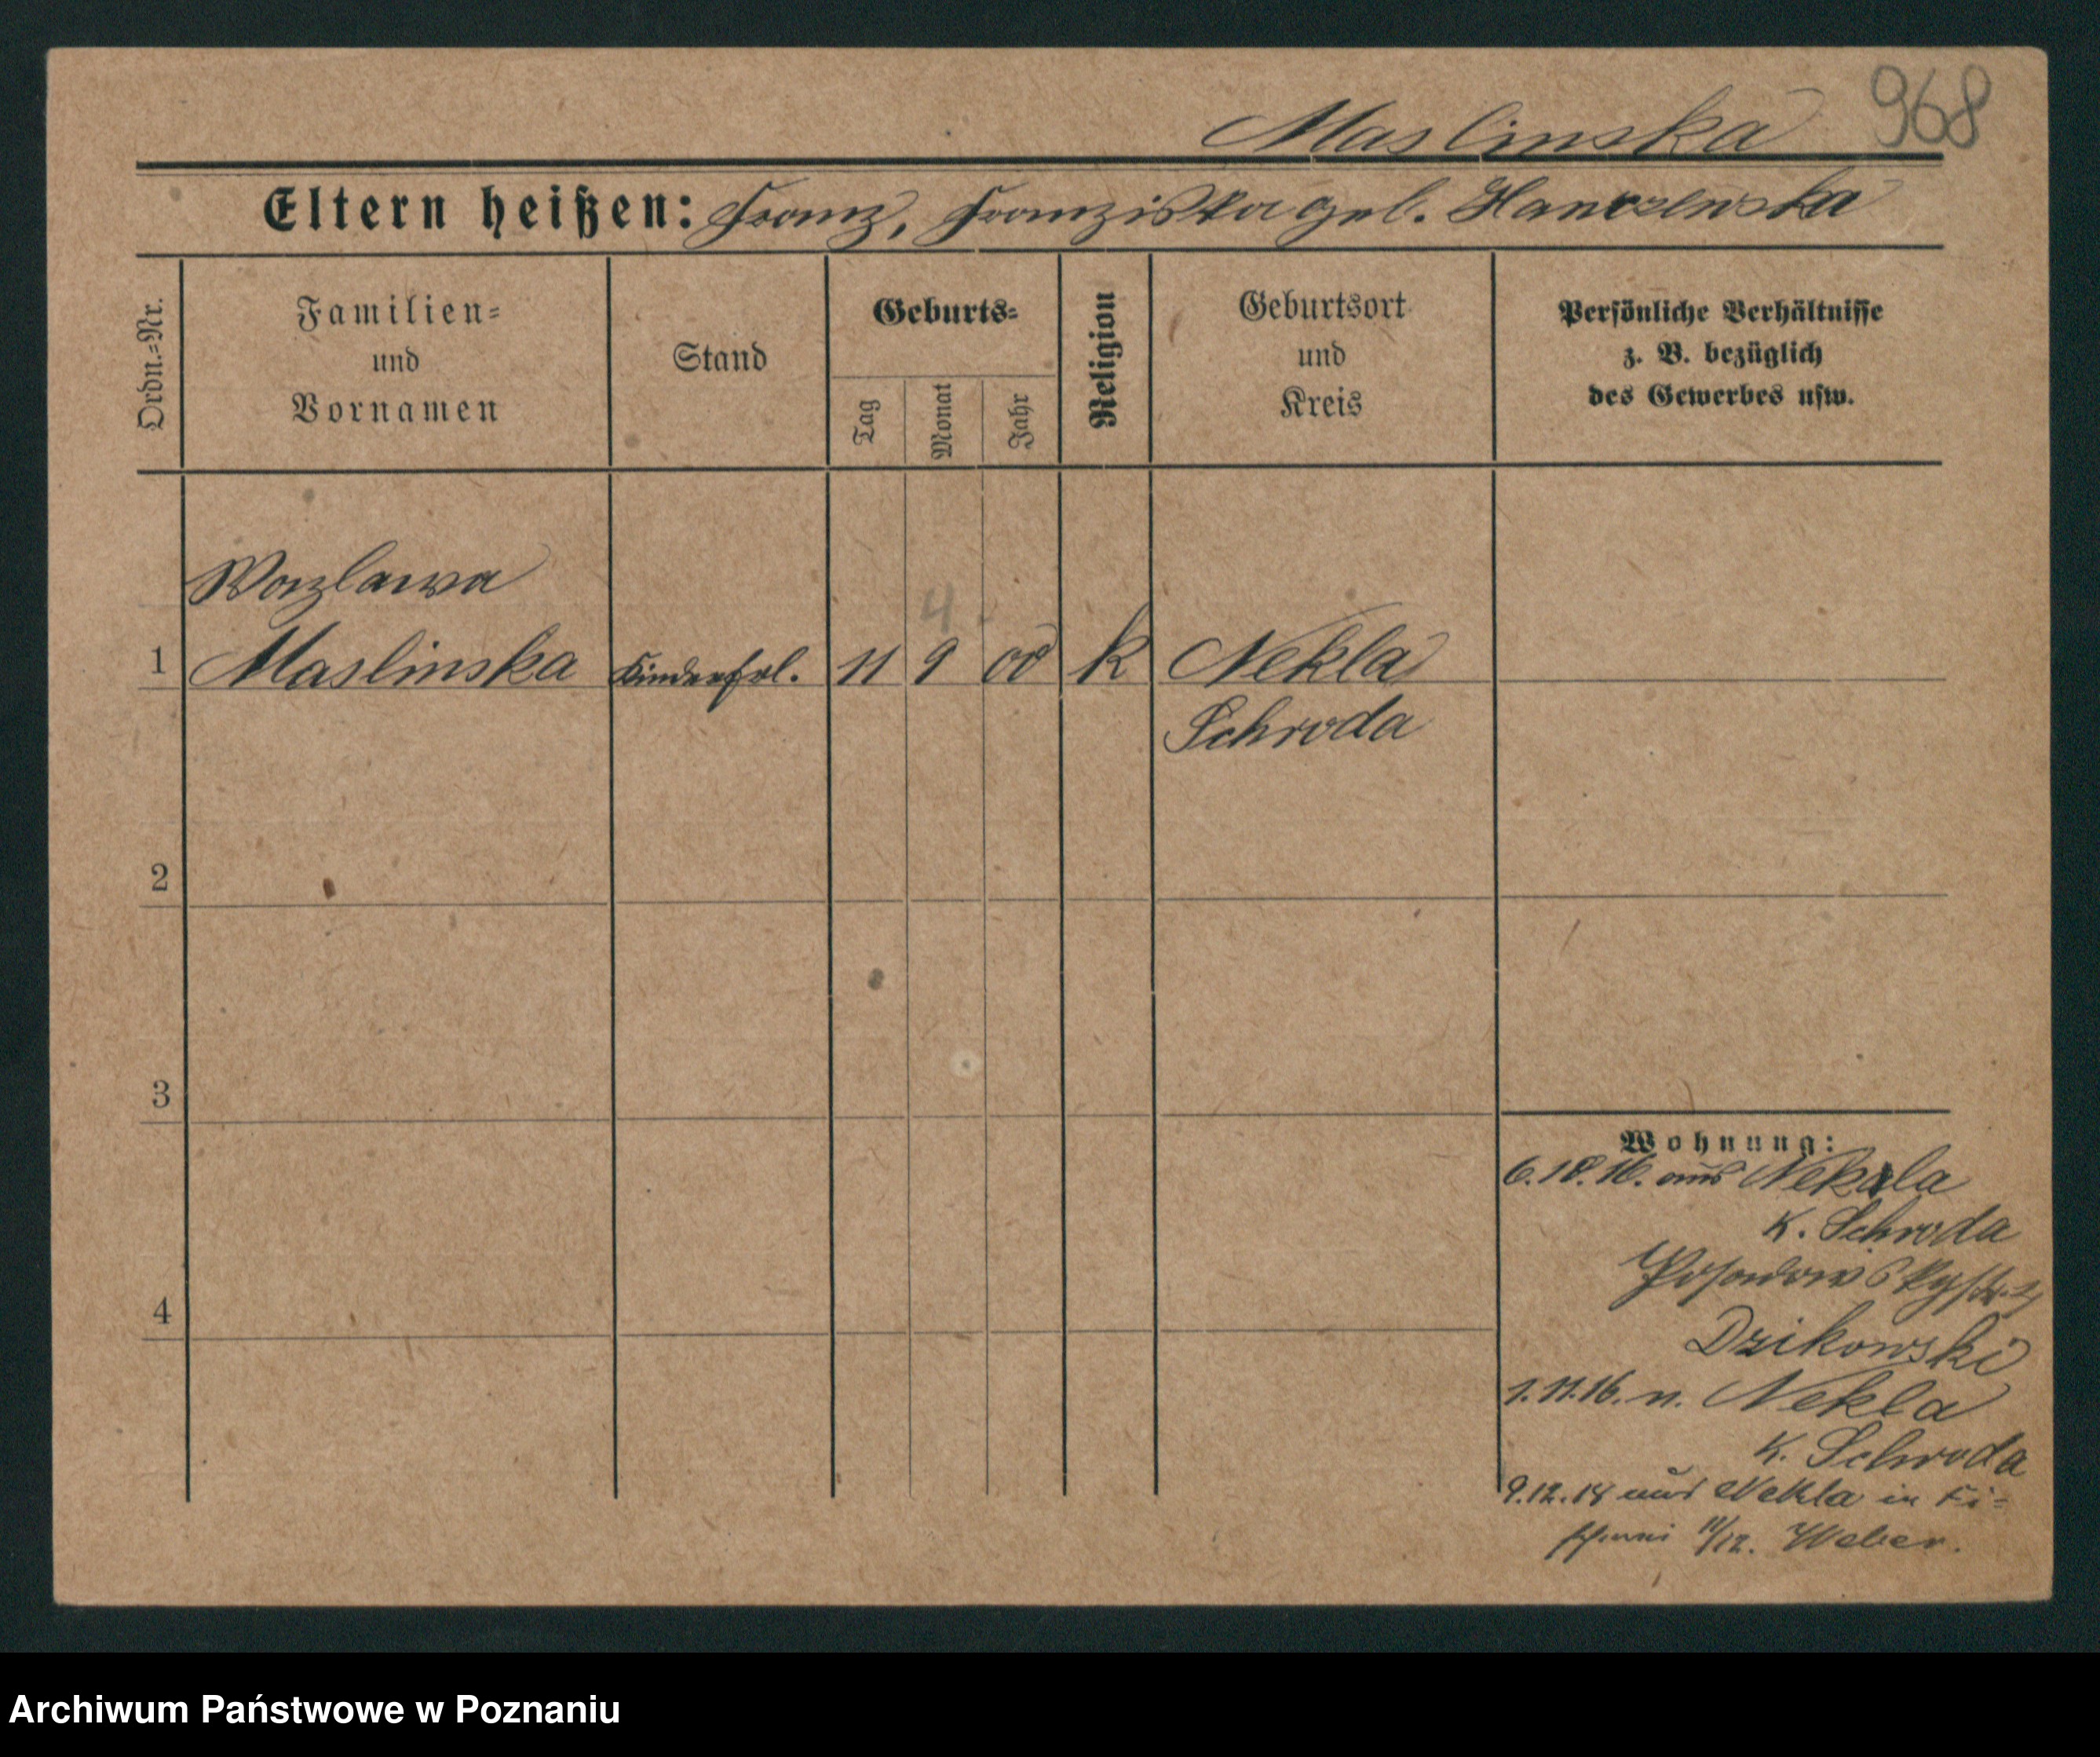 968
Maslinska
Eltern heißen: Franz, Franziska geb. Hanczewska
Ordn.=Nr.
Familien=
und
Vornamen
Stand
Geburts=
Tag
Monat
Jahr
Religion
Geburtsort
und
Kreis
Persönliche Verhältnisse
z. B. bezüglich
des Gewerbes usw.
Wazlawa
4
1 Maslinska Kinderfrl. 11 9 00 k Nekla
Schroda
2
3
4
Wohnung:
6.10.16. aus Nekla
K. Schroda
Posadowskystr.
Dzikowski
1.11.16. n. Nekla
K. Schroda
9.12.18 aus Nekla in
11/12. Weber.
Archiwum Państwowe w Poznaniu